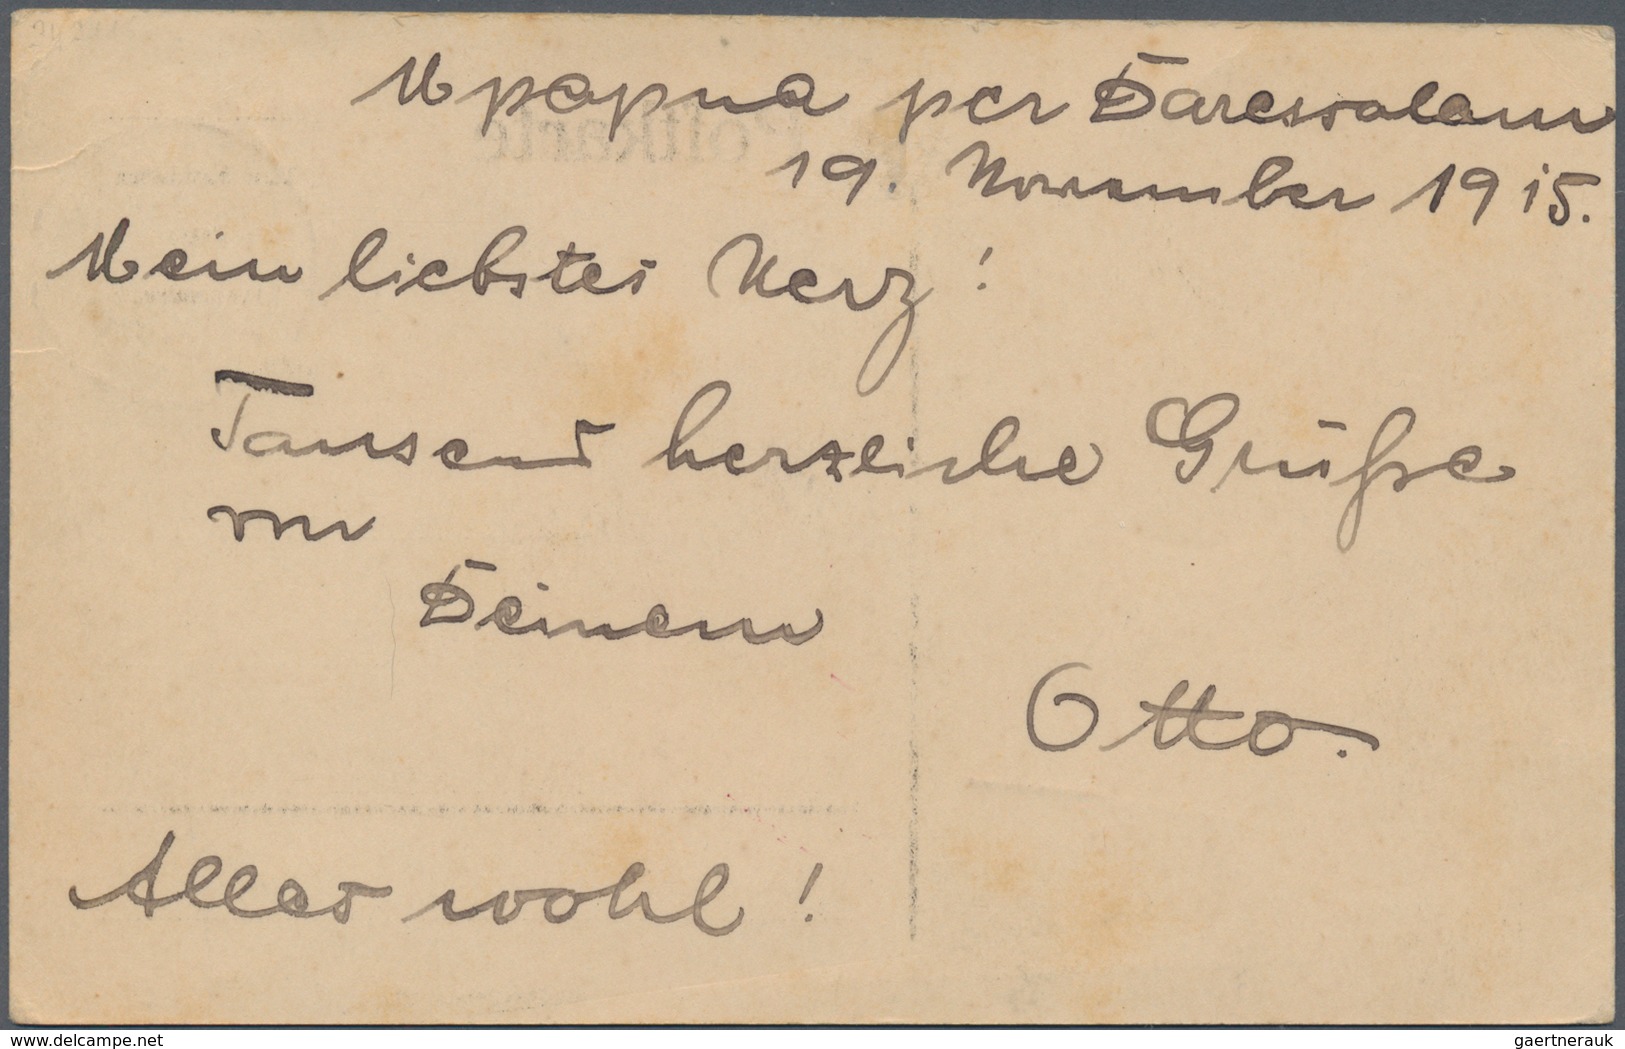 Mpapua per Daressalam
19. November 1915.
Mein liebstes Herz!
Tausend herzliche Grüße
von
Deinem
Otto.
Alles wohl!
delcampe.net
gaertnerauk